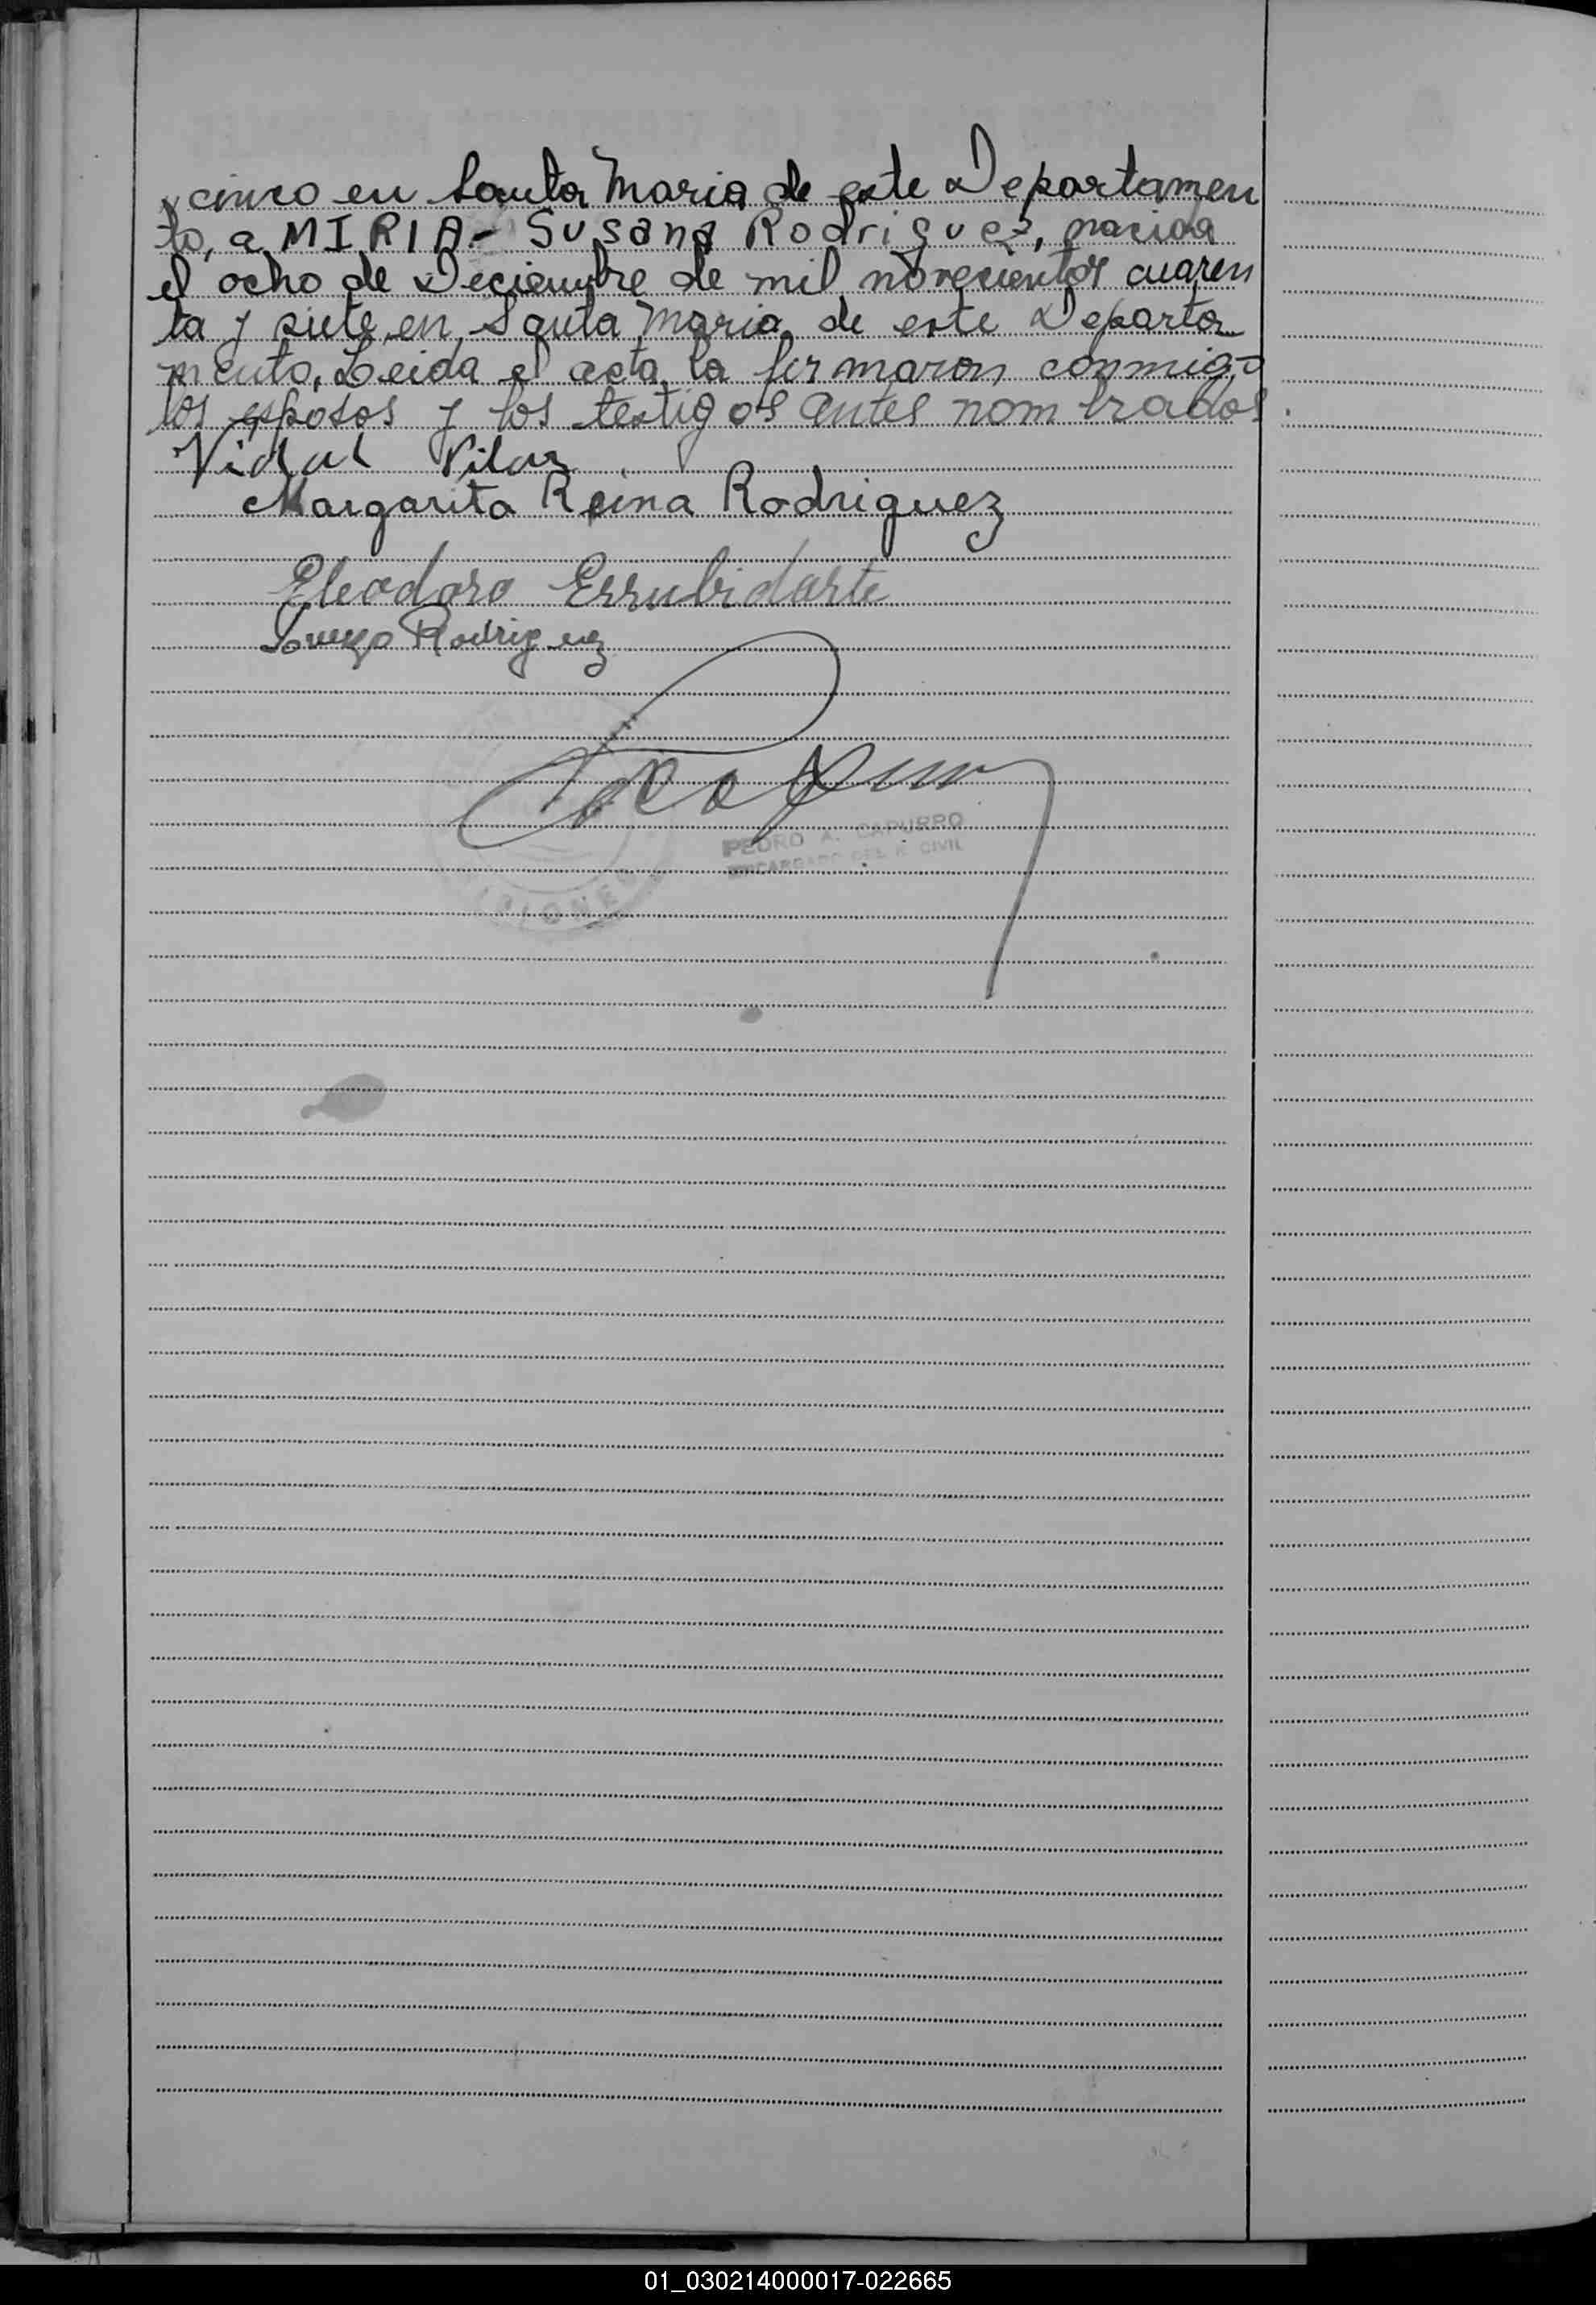 y cinco en Santa Maria de este Departamen
to, a MIRIA- Susana Rodriguez, nacida
el ocho de Deciembre de mil novecientos cuaren
ta y siete, en Santa Maria de este Departa
mento, Leida el acta la firmaron conmigo
los esposos y los testigos antes nombrados.
Vidal Vilaz
Margarita Reina Rodriguez
Eleodoro Errubidarte
Lorenzo Rodriguez
PEDRO A. CAPURRO
ENCARGADO DEL R. CIVIL
01_030214000017-022665